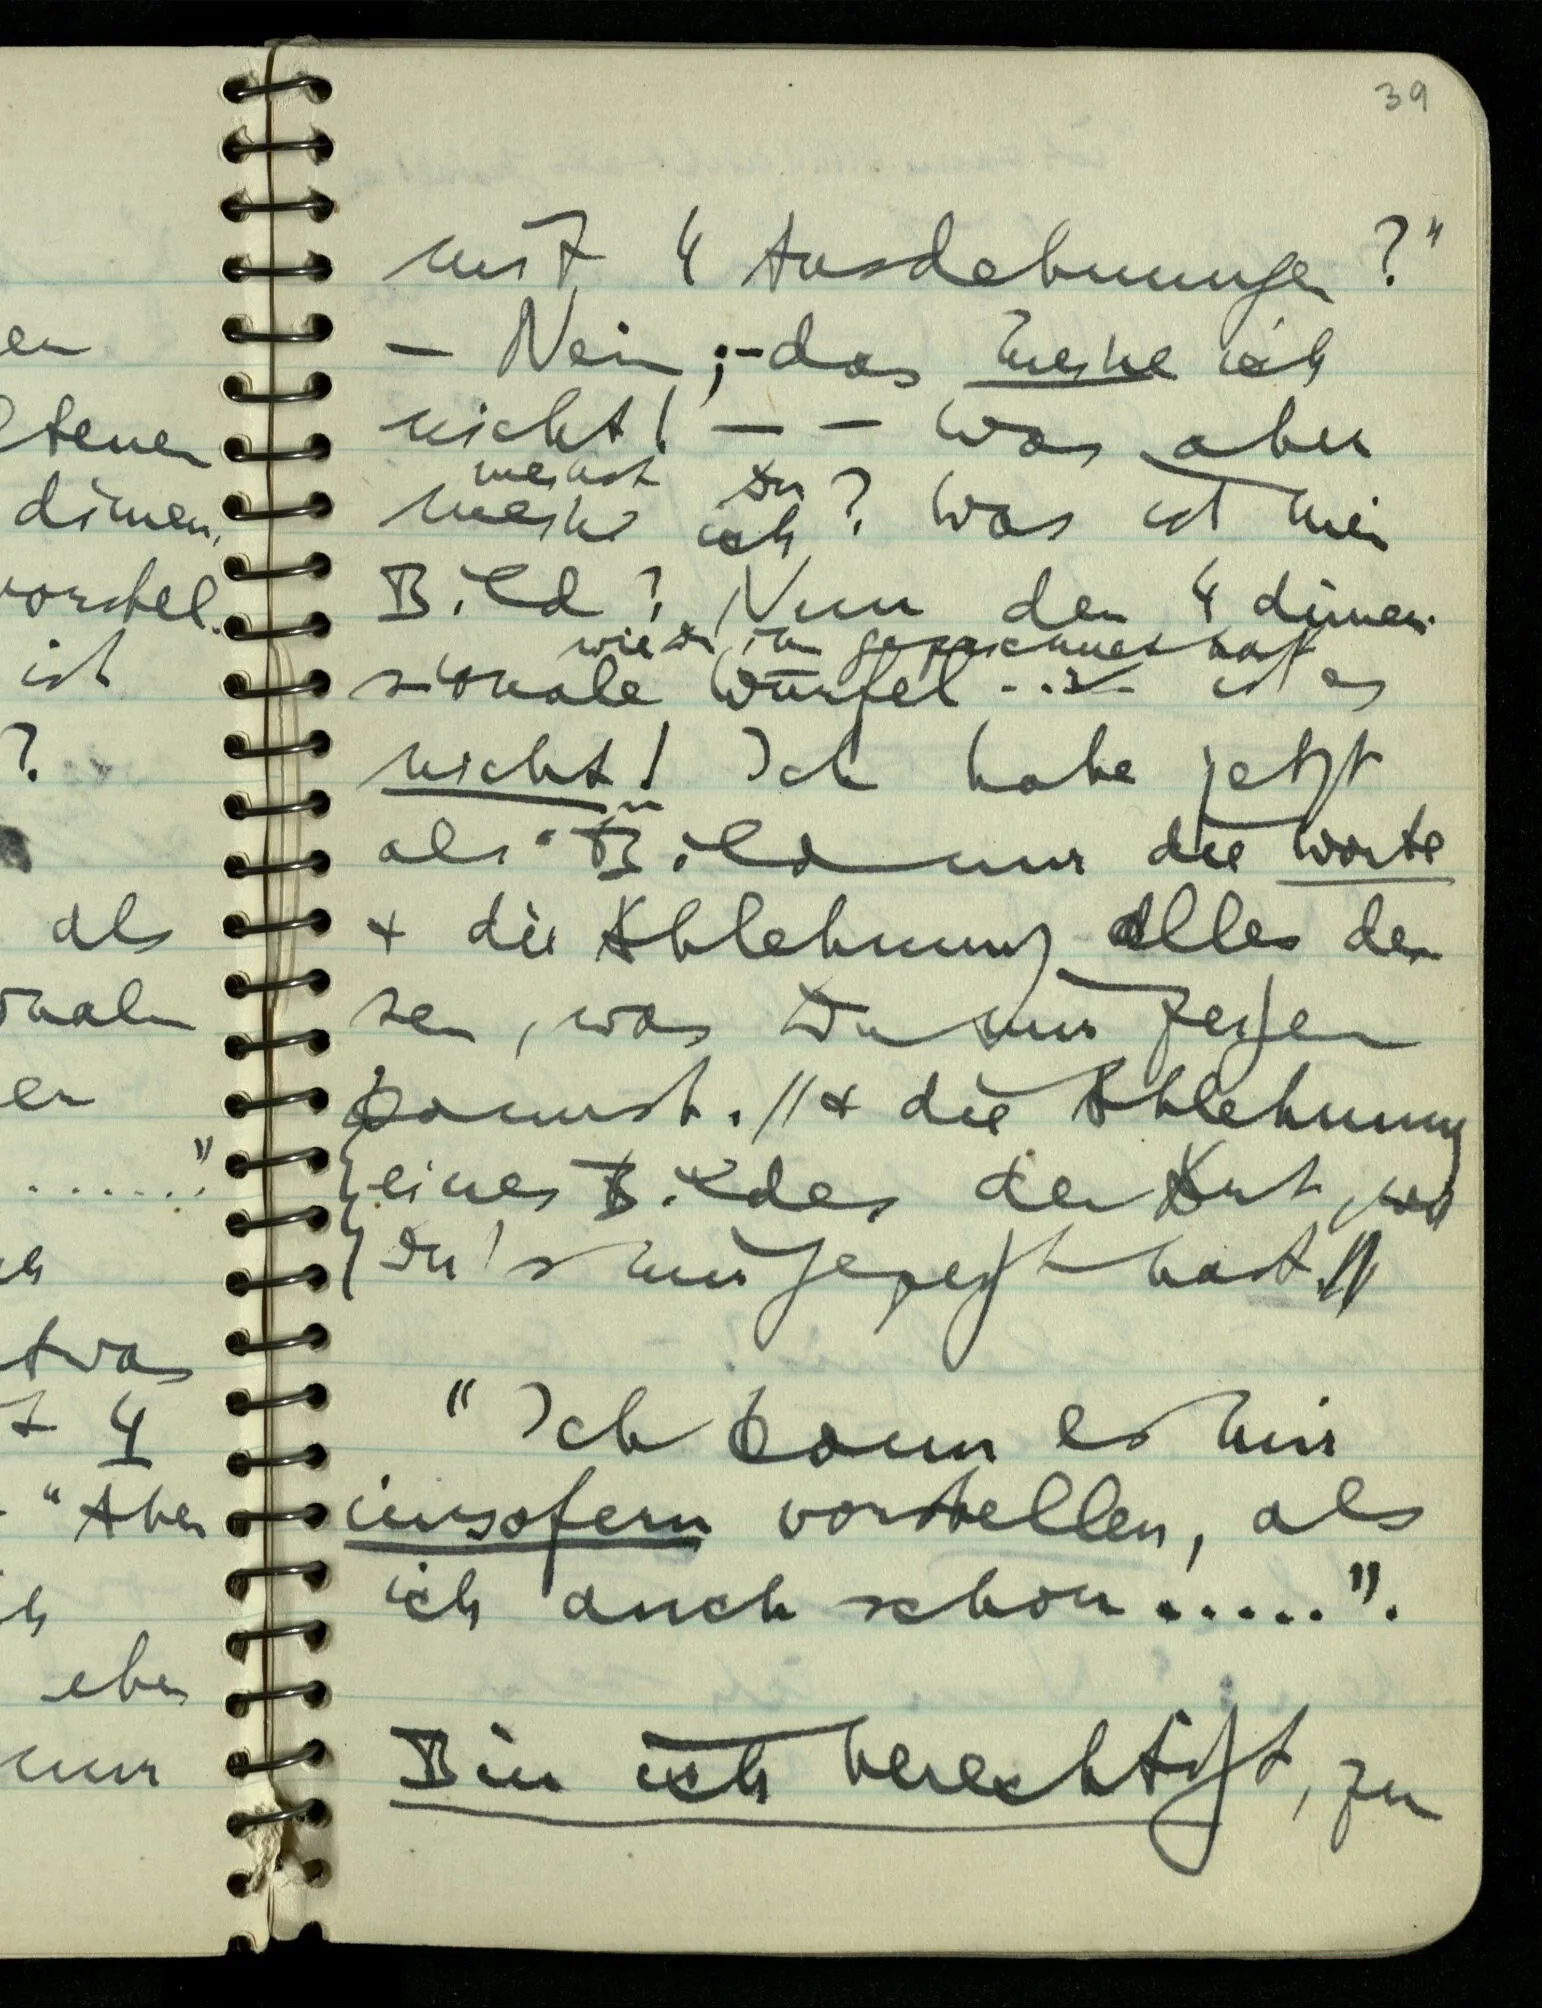 39
en
mit 4 Ausdehnungen?"
– Nein;–das meine ich
ltenen
nicht! – – Was aber
meinst Du
dimen,
meine ich? Was ist mein
vorstel.
Bild? Nun der 4 dimen-
wie Du ihn gezeichnet hast
ist
sionale Würfel ... ist es
?
nicht! Ich habe jetzt
als "Bild" nur die Worte
als
+ die Ablehnung alles des
onalen
sen, was Du mir zeigen
en
kannst. // + die Ablehnung
....."
eines Bildes der Art, wo
Du's mir gezeigt hast. //
etwas
4
"Ich kann es mir
"Aber
insofern vorstellen, als
ich
ich auch schon.....".
eben
nur
Bin ich berechtigt, zu